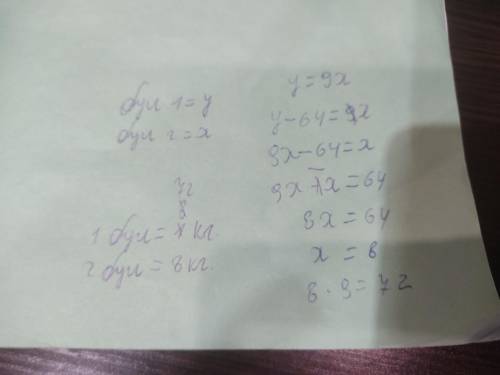 бул 1 = y
бул 2 = x
72
8
1 бул = кг.
2 бул = 8 кг.
y = 9x
y - 64 = x
9x - 64 = x
9x - 1x = 64
8x = 64
x = 8
8 · 9 = 72